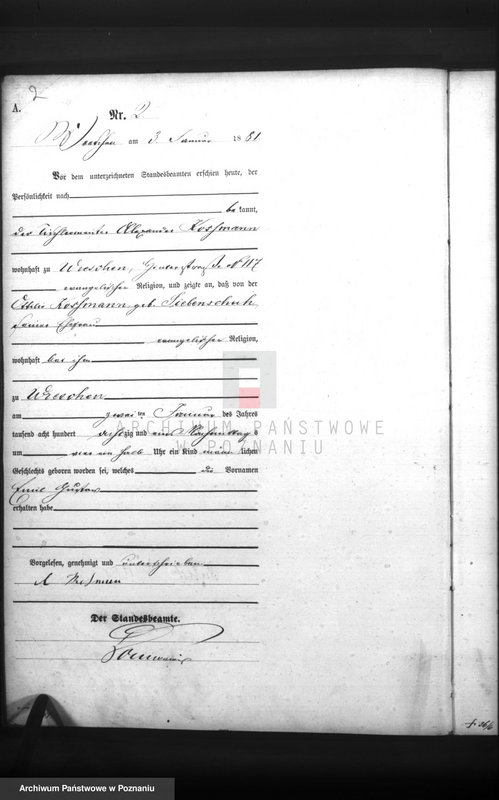 2
A.
Nr. 2
Wreschen am 3. Januar 1881.
Vor dem unterzeichneten Standesbeamten erschien heute, der
Persönlichkeit nach
be kannt,
der Tischlermeister Alexander
wohnhaft zu Wreschen, No 117
evangelischer Religion, und zeigte an, daß von der
Ottilie geb. Siebenschuh
seiner Ehefrau
evangelischer Religion,
wohnhaft bei ihm
zu Wreschen
am zwei ten Januar des Jahres
tausend acht hundert achtzig und eins Nachmittags
um ein halb Uhr ein Kind männlichen
Geschlechts geboren worden sei, welches die Vornamen
Emil Gustav
erhalten habe
Vorgelesen, genehmigt und unterschrieben
A
Der Standesbeamte.
ARCHIWUM PAŃSTWOWE
W POZNANIU
Archiwum Państwowe w Poznaniu